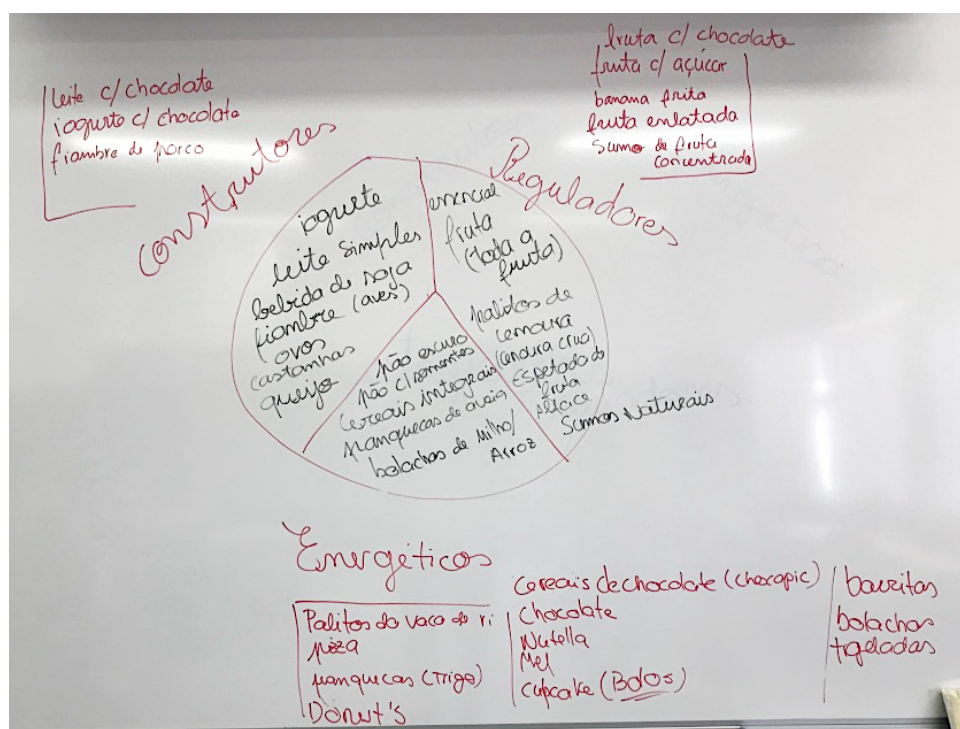 leite c/ chocolate
iogurte c/ chocolate
fiambre de porco
construtores
fruta c/ chocolate
fruta c/ açúcar
banana frita
fruta enlatada
Sumo de fruta
concentrada
Reguladores
iogurte
leite simples
bebida de soja
fiambre (aves)
ovos
castanhas
queijo
essencial
fruta
(toda a
fruta)
palitos de
cenoura
(cenoura crua)
Espetada de
fruta
Alface
Sumos Naturais
pão escuro
pão c/ sementes
Cereais integrais
panquecas de aveia
bolachas de Milho/
Arroz
Energéticos
Palitos da vaca q ri
piza
panquecas (Trigo)
Donut's
Cereais de chocolate (chocapic)
Chocolate
Nutella
Mel
Cupcake (Bolos)
barritas
bolachas
tigeladas